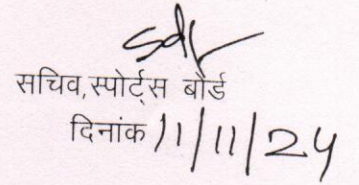 Sd/-
सचिव,स्पोर्ट्स बोर्ड
दिनांक 11/11/24